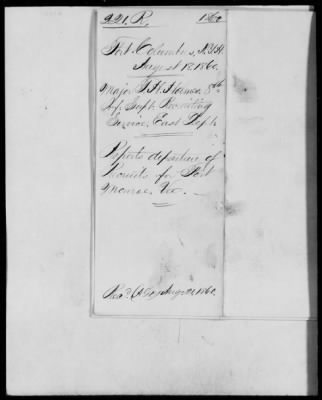 221. R. 1860
Fort Columbus, N.Y.H.
August 18. 1860.
Major T. H. Holmes, 8th
Inf. Supt. Recruiting
Service, East. Dept.
Reports departure of
Recruits for Fort
Monroe, Va.
Rec'd. Aug. 1860.